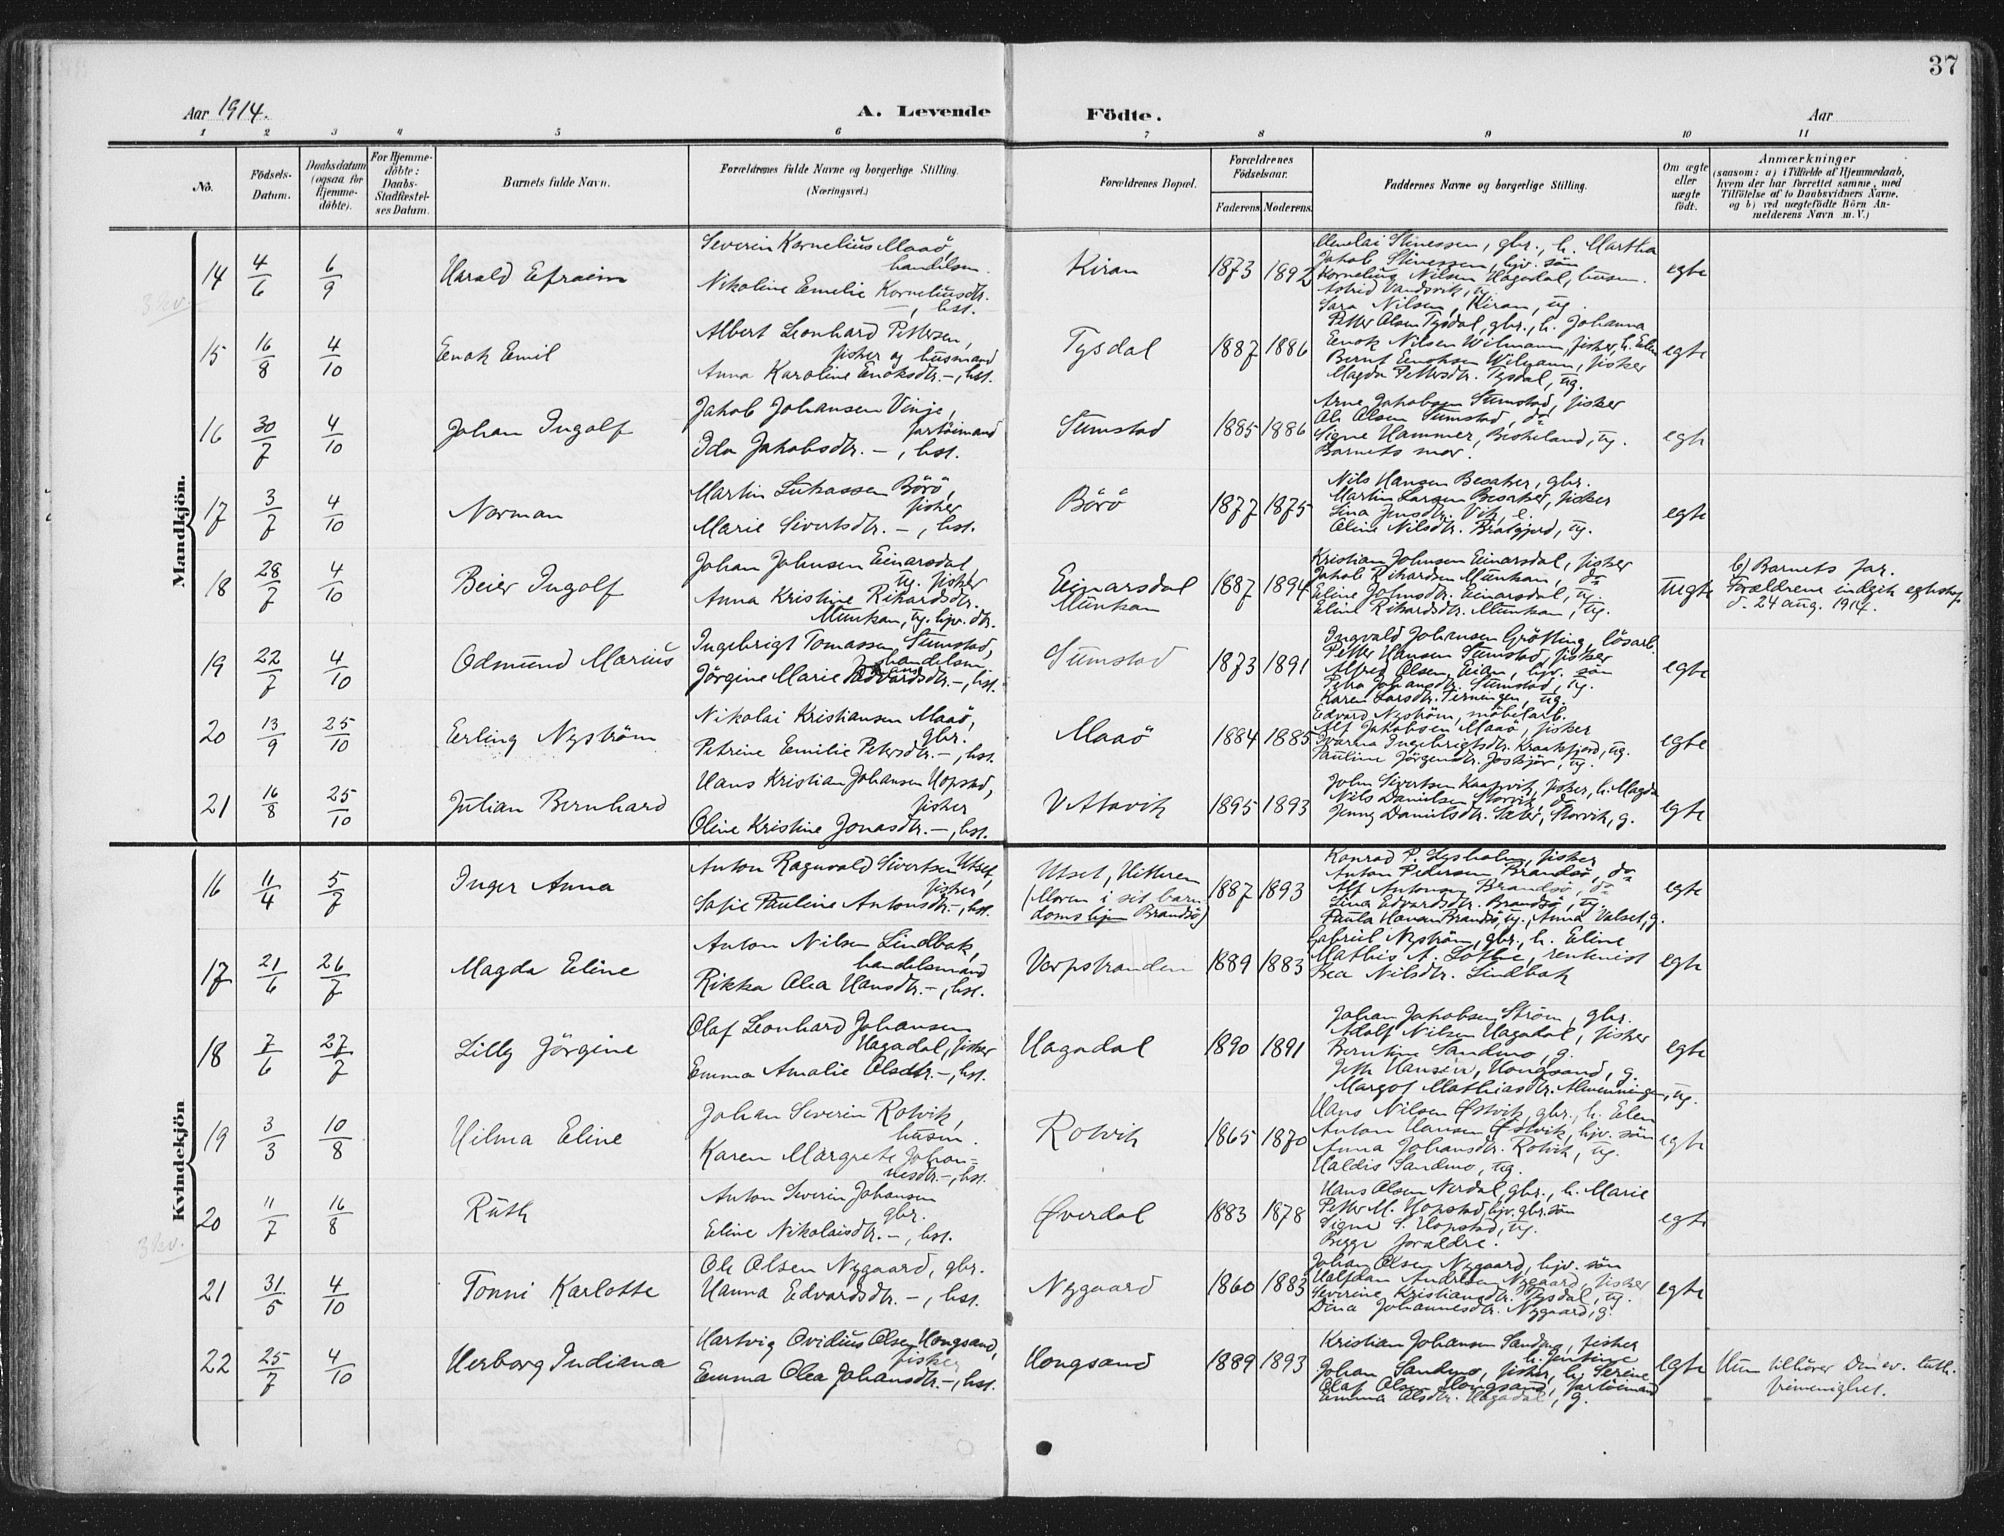 37
Aar 1914.
A. Levende
Födte.
Aar
1 2 3 4 5 6 7 8 9 10 11
No.
Födsels-Datum.
Daabsdatum (ogsaa for Hjemmedöbte).
For Hjemmedöbte: Daabs-Stadfæstelses Datum.
Barnets fulde Navn.
Forældrenes fulde Navne og borgerlige Stilling.
(Næringsvei.)
Forældrenes Bopæl.
Forældrenes Födselsaar.
Faderens Moderens
Faddernes Navne og borgerlige Stilling.
Om ægte eller uægte født.
Anmærkninger
(saasom: a) i Tilfælde af Hjemmedaab,
hvem der har forrettet samme, med
Tilföielse af to Daabsvidners Navne.
og b) ved uægtefödte Börn An-
melderens Navn m. V.)
Mandkjön.
14 4/6 6/9 Harald Efraim
Severin Kornelius Maaö,
handelsm.
Nikoline Emelie Korneliusdtr.
—, hst.
Kiran 1873 1892
Menelai Stinessen, gbr., h. Martha
Jakob Stinessen, hjv. sön
Kornelius Nilsen Hagadal, husm.
Astrid Vandsvik, ug.
Sara Nilsen, Kiran, ug.
egte
3 kv.
15 16/8 4/10 Enok Emil
Albert Leonhard Pettersen,
fisker og husmand
Anna Karoline Enoksdtr. —, hst.
Tysdal 1887 1886
Petter Olsen Tysdal, gbr., h. Johanna
Enok Nilsen Wilmann, fisker, h. Elen
Bernt Enoksen Wilmann, fisker
Magda Pettersdtr. Tysdal, ug.
egte
16 30/7 4/10 Johan Ingolf
Jakob Johansen Vinje,
fartöimand
Ida Jakobsdtr. —, hst.
Sumstad 1885 1886
Arne Jakobsen Sumstad, fisker
Ole Olsen Sumstad, do
Signe Hammer, Beskeland, ug.
Barnets mor.
egte
17 3/7 4/10 Norman
Martin Lukassen Börö,
fisker
Marie Sivertsdtr. —, hst.
Börö 1877 1875
Nils Hansen Besaker, gbr.
Martin Larsen Besaker, fisker
Lina Jensdtr. Vik, e.
Oline Nilsdtr. Bratgjerd, ug.
egte
18 28/7 4/10 Beier Ingolf
Johan Johnsen Einarsdal
ug. fisker
Anna Kristine Rikardsdtr.
Munkan, ug. hjv. dtr.
Einarsdal
Munkan
1887 1894
Kristian Johnsen Einarsdal, fisker
Jakob Rikardsen Munkan, do
Eline Johnsdtr. Einarsdal, ug.
Elise Rikardsdtr. Munkan, ug.
uegte
b) Barnets far.
Forældrene indgik egteskap
d. 24 aug. 1914.
19 22/7 4/10 Odmund Marius
Ingebrigt Tomassen Sumstad,
handelsm.
Jörgine Marie Edvardsdtr. —, hst.
Sumstad 1873 1891
Ingvald Johansen Gröttling, lösarb.
Petter Hansen Sumstad, fisker
Alfred Olsen Eian, hjv. sön
Petra Johansdtr. Sumstad, ug.
Karen Larsdtr. Terningen, ug.
egte
20 13/9 25/10 Erling Nyström
Nikolai Kristiansen Maaö,
gbr.
Petrine Emilie Petersdtr. —, hst.
Maaö 1884 1885
Edvard Nyström, möbelarb.
Alf Jakobsen Maaö, fisker
Ivarna Ingebrigtsdtr. Kraakfjord, ug.
Pauline Jörgensdtr. Joskjör, ug.
egte
21 16/8 25/10 Julian Bernhard
Hans Kristian Johansen Hopstad,
fisker
Oline Kristine Jonasdtr. —, hst.
Vettavik 1895 1893
John Sivertsen Kaapvik, fisker, h. Magda
Nils Danielsen Storvik, do
Jenny Danielsdtr. Sæter, Storvik, g.
egte
Kvindekjön
16 11/4 5/7 Inger Anna
Anton Ragnvald Sivertsen Utset,
fisker
Sofie Pauline Antonsdtr. —, hst.
Utset, Hitteren
(Moren i sit barn
domshjem Brandsö)
1887 1893
Konrad P. Lysholm, fisker
Anton Pedersen Brandsö, do
Alf Antonsen Brandsö, do
Lina Edvardsdtr. Brandsö, ug.
Paula Hansen Brandsö, ug., Anna Valset, g.
egte
17 21/6 26/7 Magda Eline
Anton Nilsen Lindbak,
handelsmand
Rikka Olea Hansdtr. —, hst.
Verpstranden 1889 1883
Gabriel Nyström, gbr., h. Eline
Mathis A. Lothe, rentenist
Bea Nilsdtr. Lindbak
egte
18 7/6 27/7 Lilly Jörgine
Olaf Leonhard Johansen
Hagadal, fisker
Emma Amalie Olsdtr. —, hst.
Hagadal 1890 1891
Johan Jakobsen Ström, gbr.
Adolf Nilsen Hagadal, fisker
Berntine Sandmo, g.
Jette Hansen, Hongsand, g.
Margot Mathiasdtr. Almenningen, ug.
egte
19 3/3 10/8 Hilma Eline
Johan Severin Rotvik,
husm.
Karen Margrete Johan-
nesdtr. —, hst.
Rotvik 1865 1870
Hans Nilsen Østvik, gbr., h. Elen
Anton Hansen Østvik, hjv. sön
Anna Johansdtr. Rotvik, ug.
Haldis Sandmo, ug.
egte
20 11/7 16/8 Ruth
Anton Severin Johansen
gbr.
Eline Nikolaisdtr. —, hst.
Øverdal 1883 1878
Hans Olsen Nerdal, gbr., h. Marie
Petter M. Hopstad, hjv. gbr. sön
Signe S. Hopstad, ug.
Begge forældre.
egte
3 kv.
21 31/5 4/10 Tonni Karlotte
Ole Olsen Nygaard, gbr.
Hanna Edvardsdtr. —, hst.
Nygaard 1860 1883
Johan Olsen Nygaard, hjv. sön
Halfdan Andersen Nygaard, fisker
Severine Kristiansdtr. Tysdal, ug.
Dina Johannesdtr. Nygaard, g.
egte
22 25/7 4/10 Herborg Indiana
Hartvig Ovidius Olsen Hongsand,
fisker
Emma Olea Johansdtr. —, hst.
Hongsand 1889 1893
Kristian Johansen Sandmo, fisker
h. Jentine
Johan Sandmo, fisker, h. Serine
Olaf Olsen Hongsand, fartöimand
Emma Olsdtr. Hagadal, g.
egte
Hun tilhörer Den ev. luth.
frimenighet.